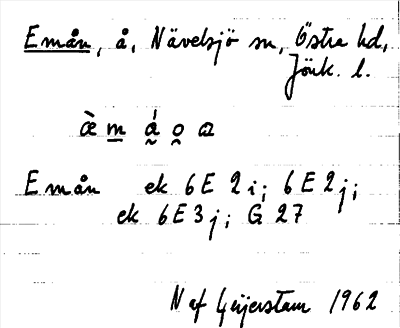 Emån, å, Nävelsjö sn, Östra hd,
Jönk. l.
æ̀ m̲ á̰ o̯ ɷ
Emån ek 6E 2i; 6E2j;
ek 6E3j; G 27
N af Geijerstam 1962